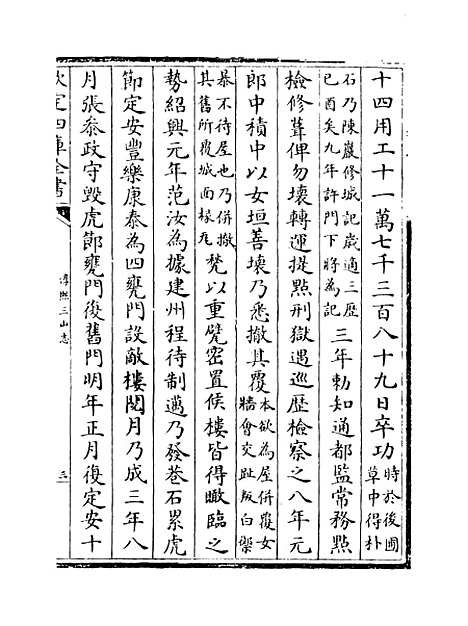 十四用工十一萬七千三百八十九日卒功時於後圃草中得朴
石乃陳巖修城記歲適三歴已酉矣九年許門下將為記三年勅知通都監常務㸃
檢修葺俾勿壊轉運提㸃刑獄遇巡歴檢察之八年元
郎中積中以女垣善壊乃悉撤其覆本欲為屋併覆女墻會交趾叛白
暴不待屋也乃併撤其舊所覆城面椽瓦甃以重甓密置候樓皆得瞰臨之
勢紹興元年范汝為據建州程待制邁乃發巷石累虎
節定安豐樂康泰為四甕門設敵樓閱月乃成三年八
月張叅政守毁虎節甕門復舊門明年正月復定安十
欽定四庫全書
淳熙三山志
三